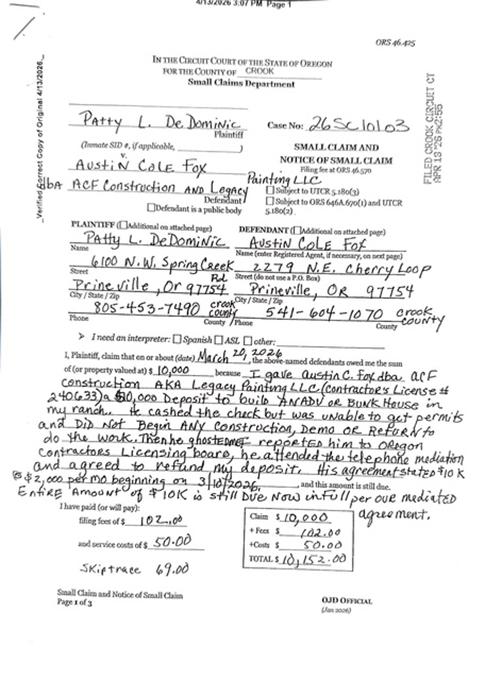 4/13/2026 3:07 PM Page 1
ORS 46.425
IN THE CIRCUIT COURT OF THE STATE OF OREGON
FOR THE COUNTY OF CROOK
Small Claims Department
Patty L. DeDominic
Plaintiff
Case No: 26SC10103
(Inmate SID #, if applicable, )
v.
SMALL CLAIM AND
NOTICE OF SMALL CLAIM
Filing fee at ORS 46.570
Austin Cole Fox
dba ACF Construction AND Legacy Painting LLC
Defendant
☐ Defendant is a public body
☐ Subject to UTCR 5.180(3)
☐ Subject to ORS 646A.670(1) and UTCR 5.180(2).
Verified Correct Copy of Original 4/13/2026
FILED CROOK CIRCUIT CT
APR 13 '26 PM2:55
PLAINTIFF (☐ Additional on attached page)
Patty L. DeDominic
Name
6100 N.W. Spring Creek Rd.
Street
Prineville, Or 97754
City / State / Zip
805-453-7490 crook county
Phone County
DEFENDANT (☐ Additional on attached page)
Austin Cole Fox
Name (enter Registered Agent, if necessary, on next page)
2279 N.E. Cherry Loop
Street (do not use a P.O. Box)
Prineville, OR 97754
City / State / Zip
541-604-1070 crook county
Phone County
➢ I need an interpreter: ☐ Spanish ☐ ASL ☐ other:
I, Plaintiff, claim that on or about (date) March 20, 2026, the above-named defendants owed me the sum
of (or property valued at) $ 10,000 because I gave Austin C. Fox dba ACF
Construction AKA Legacy Painting LLC (Contractors License #
240633) a $10,000 Deposit to build AN ADU OR BUNK House in
my ranch. He cashed the check but was unable to get permits
and DID NOT BEGIN ANY CONSTRUCTION, DEMO OR RETURN to
do the work. Then he ghosted me reported him to Oregon
Contractors Licensing board, he attended the telephone mediation
and agreed to refund my deposit. His agreement stated $10K
$2,000 per mo beginning on 3/10/2026, and this amount is still due.
Entire Amount of $10K is still Due Now in full per our mediated
agreement.
I have paid (or will pay):
filing fees of $ 102.00
and service costs of $ 50.00
Skiptrace 69.00
Claim $ 10,000
+ Fees $ 102.00
+Costs $ 50.00
TOTAL $ 10,152.00
Small Claim and Notice of Small Claim
Page 1 of 3
OJD OFFICIAL
(Jan 2026)